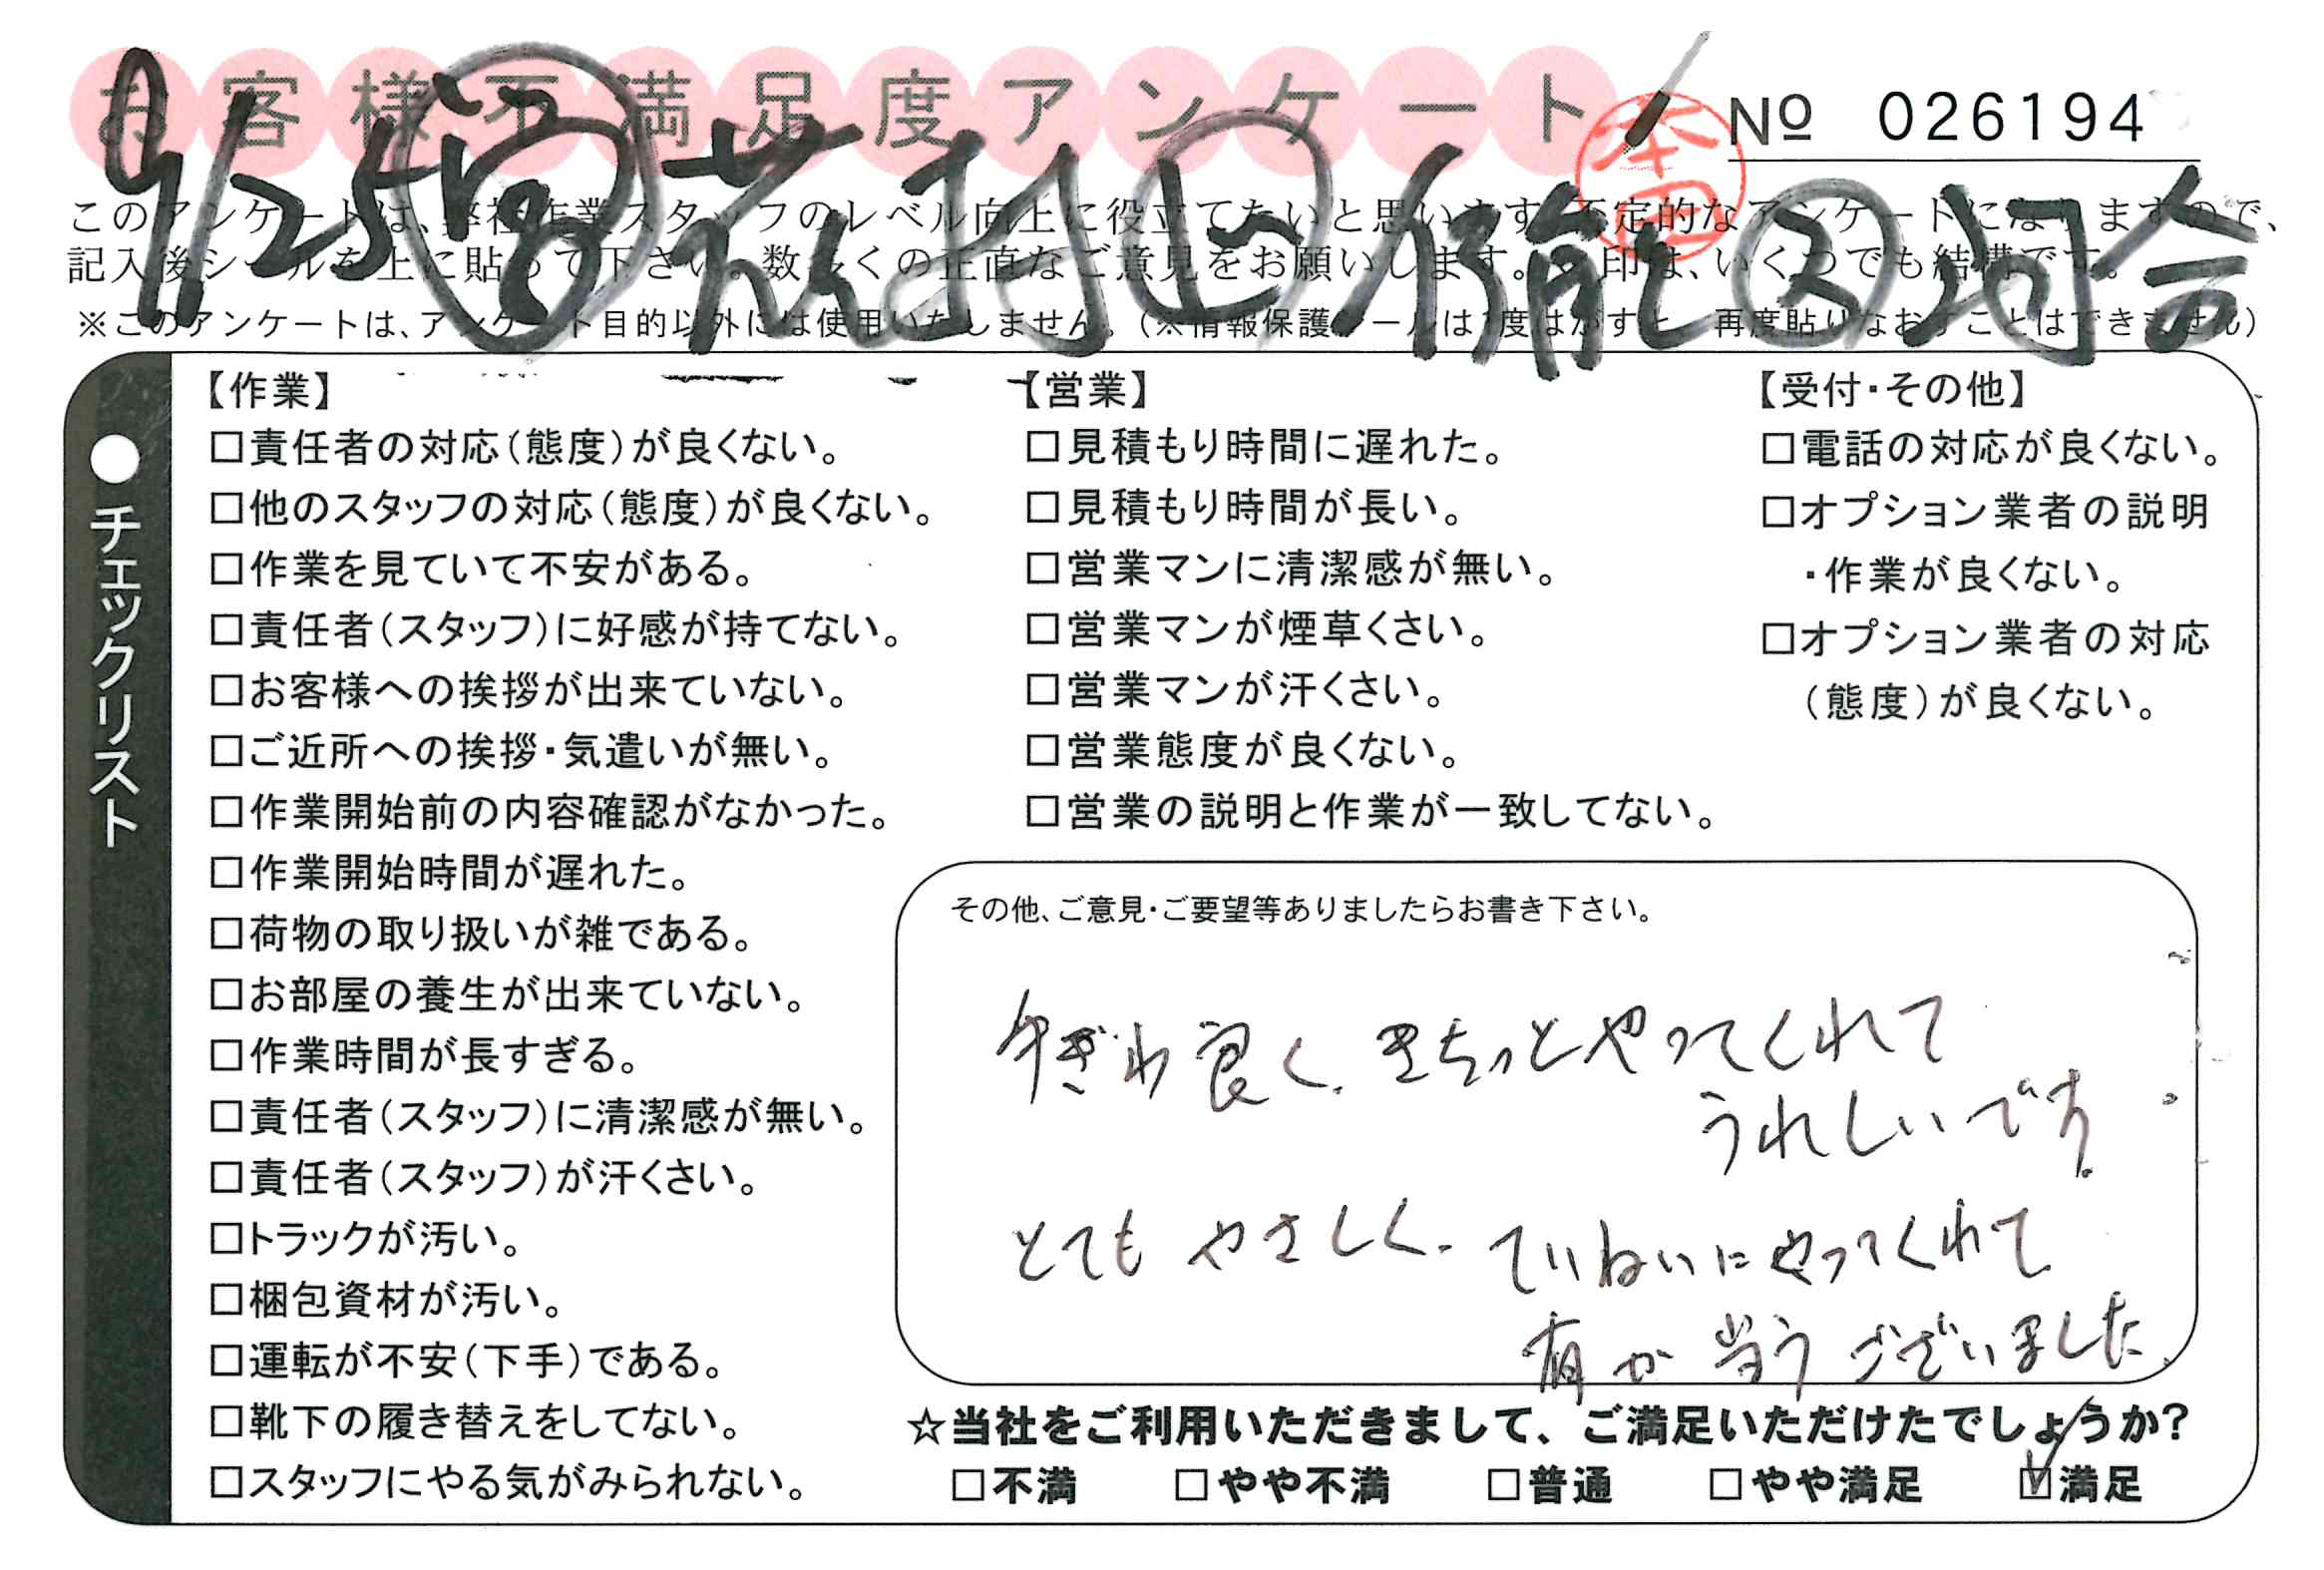 お客様不満足度アンケート
本田
№ 026194
9/25
このアンケートは、弊社作業スタッフのレベル向上に役立てたいと思います。否定的なアンケートになりますので、
記入後シールを上に貼って下さい。数多くの正直なご意見をお願いします。 印は、いくつでも結構です。
※このアンケートは、アンケート目的以外には使用いたしません。(※情報保護シールは1度はがすと、再度貼りなおすことはできません)
●チェックリスト
【作業】
□責任者の対応(態度)が良くない。
□他のスタッフの対応(態度)が良くない。
□作業を見ていて不安がある。
□責任者(スタッフ)に好感が持てない。
□お客様への挨拶が出来ていない。
□ご近所への挨拶・気遣いが無い。
□作業開始前の内容確認がなかった。
□作業開始時間が遅れた。
□荷物の取り扱いが雑である。
□お部屋の養生が出来ていない。
□作業時間が長すぎる。
□責任者(スタッフ)に清潔感が無い。
□責任者(スタッフ)が汗くさい。
□トラックが汚い。
□梱包資材が汚い。
□運転が不安(下手)である。
□靴下の履き替えをしてない。
□スタッフにやる気がみられない。
【営業】
□見積もり時間に遅れた。
□見積もり時間が長い。
□営業マンに清潔感が無い。
□営業マンが煙草くさい。
□営業マンが汗くさい。
□営業態度が良くない。
□営業の説明と作業が一致してない。
【受付・その他】
□電話の対応が良くない。
□オプション業者の説明
・作業が良くない。
□オプション業者の対応
(態度)が良くない。
その他、ご意見・ご要望等ありましたらお書き下さい。
手ぎわ良く、きちっとやってくれて
うれしいです。
とてもやさしく、ていねいにやってくれて
有が当うございました。
☆当社をご利用いただきまして、ご満足いただけたでしょうか?
□不満 □やや不満 □普通 □やや満足 ☑満足